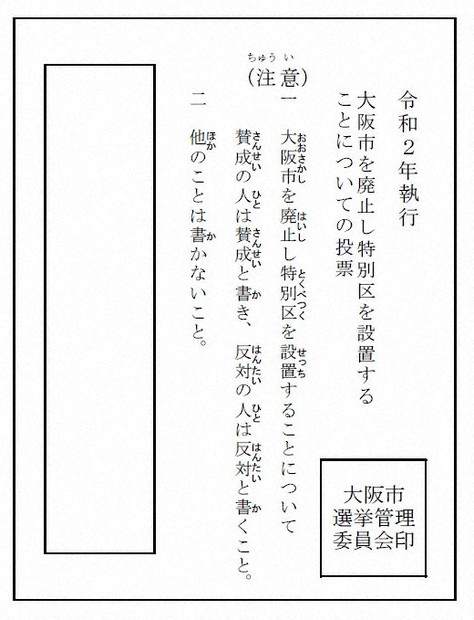 令和２年執行
大阪市を廃止し特別区を設置する
ことについての投票
大阪市
選挙管理
委員会印
（注意）
ちゅうい
一　大阪市を廃止し特別区を設置することについて
おおさかし　はいし　とくべつく　せっち
賛成の人は賛成と書き、反対の人は反対と書くこと。
さんせい　ひと　さんせい　か　はんたい　ひと　はんたい　か
二　他のことは書かないこと。
ほか　か